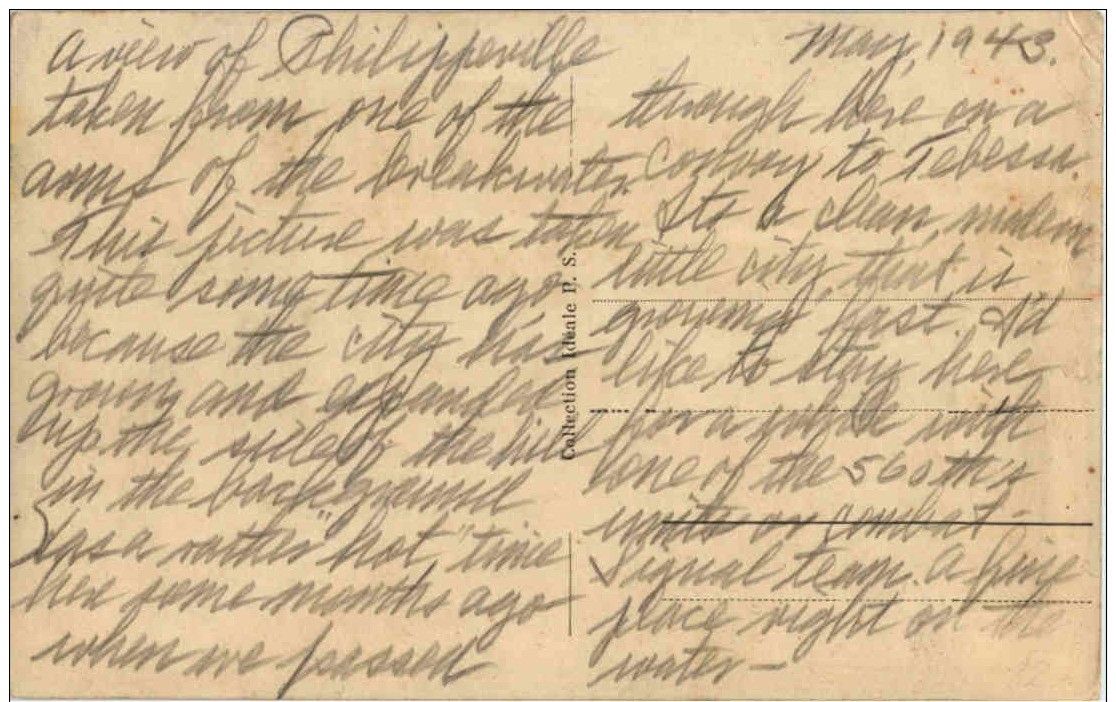 A view of Philippeville
taken from one of the
arms of the breakwater.
This picture was taken
quite some time ago
because the city has
grown and expanded
up the side of the hill
in the background
I was a rather "hot" time
here some months ago
when we passed
May, 1943.
through here on a
convoy to Tebessa.
Its a clean, modern
little city that is
growing fast. I'd
like to stay here
for a while with
one of the 560th's
units or combat
signal team. A fine
place right on the
water—
Collection Idéale P. S.